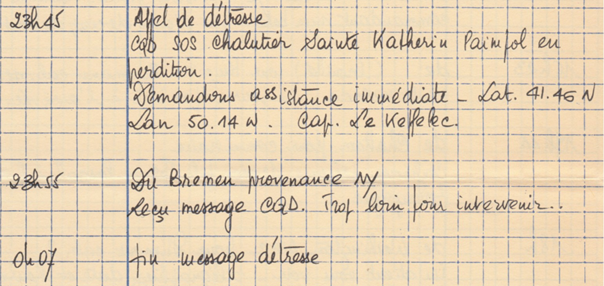 23h45 Appel de détresse
CQD SOS Chalutier Sainte Katherin Paimpol en
perdition.
Demandons assistance immédiate - Lat. 41.46 N
Lon 50.14 W. Cap. Le Keffelec.
23h55 Du Bremen provenance NY
Reçu message CQD. Trop loin pour intervenir..
0h07 fin message détresse